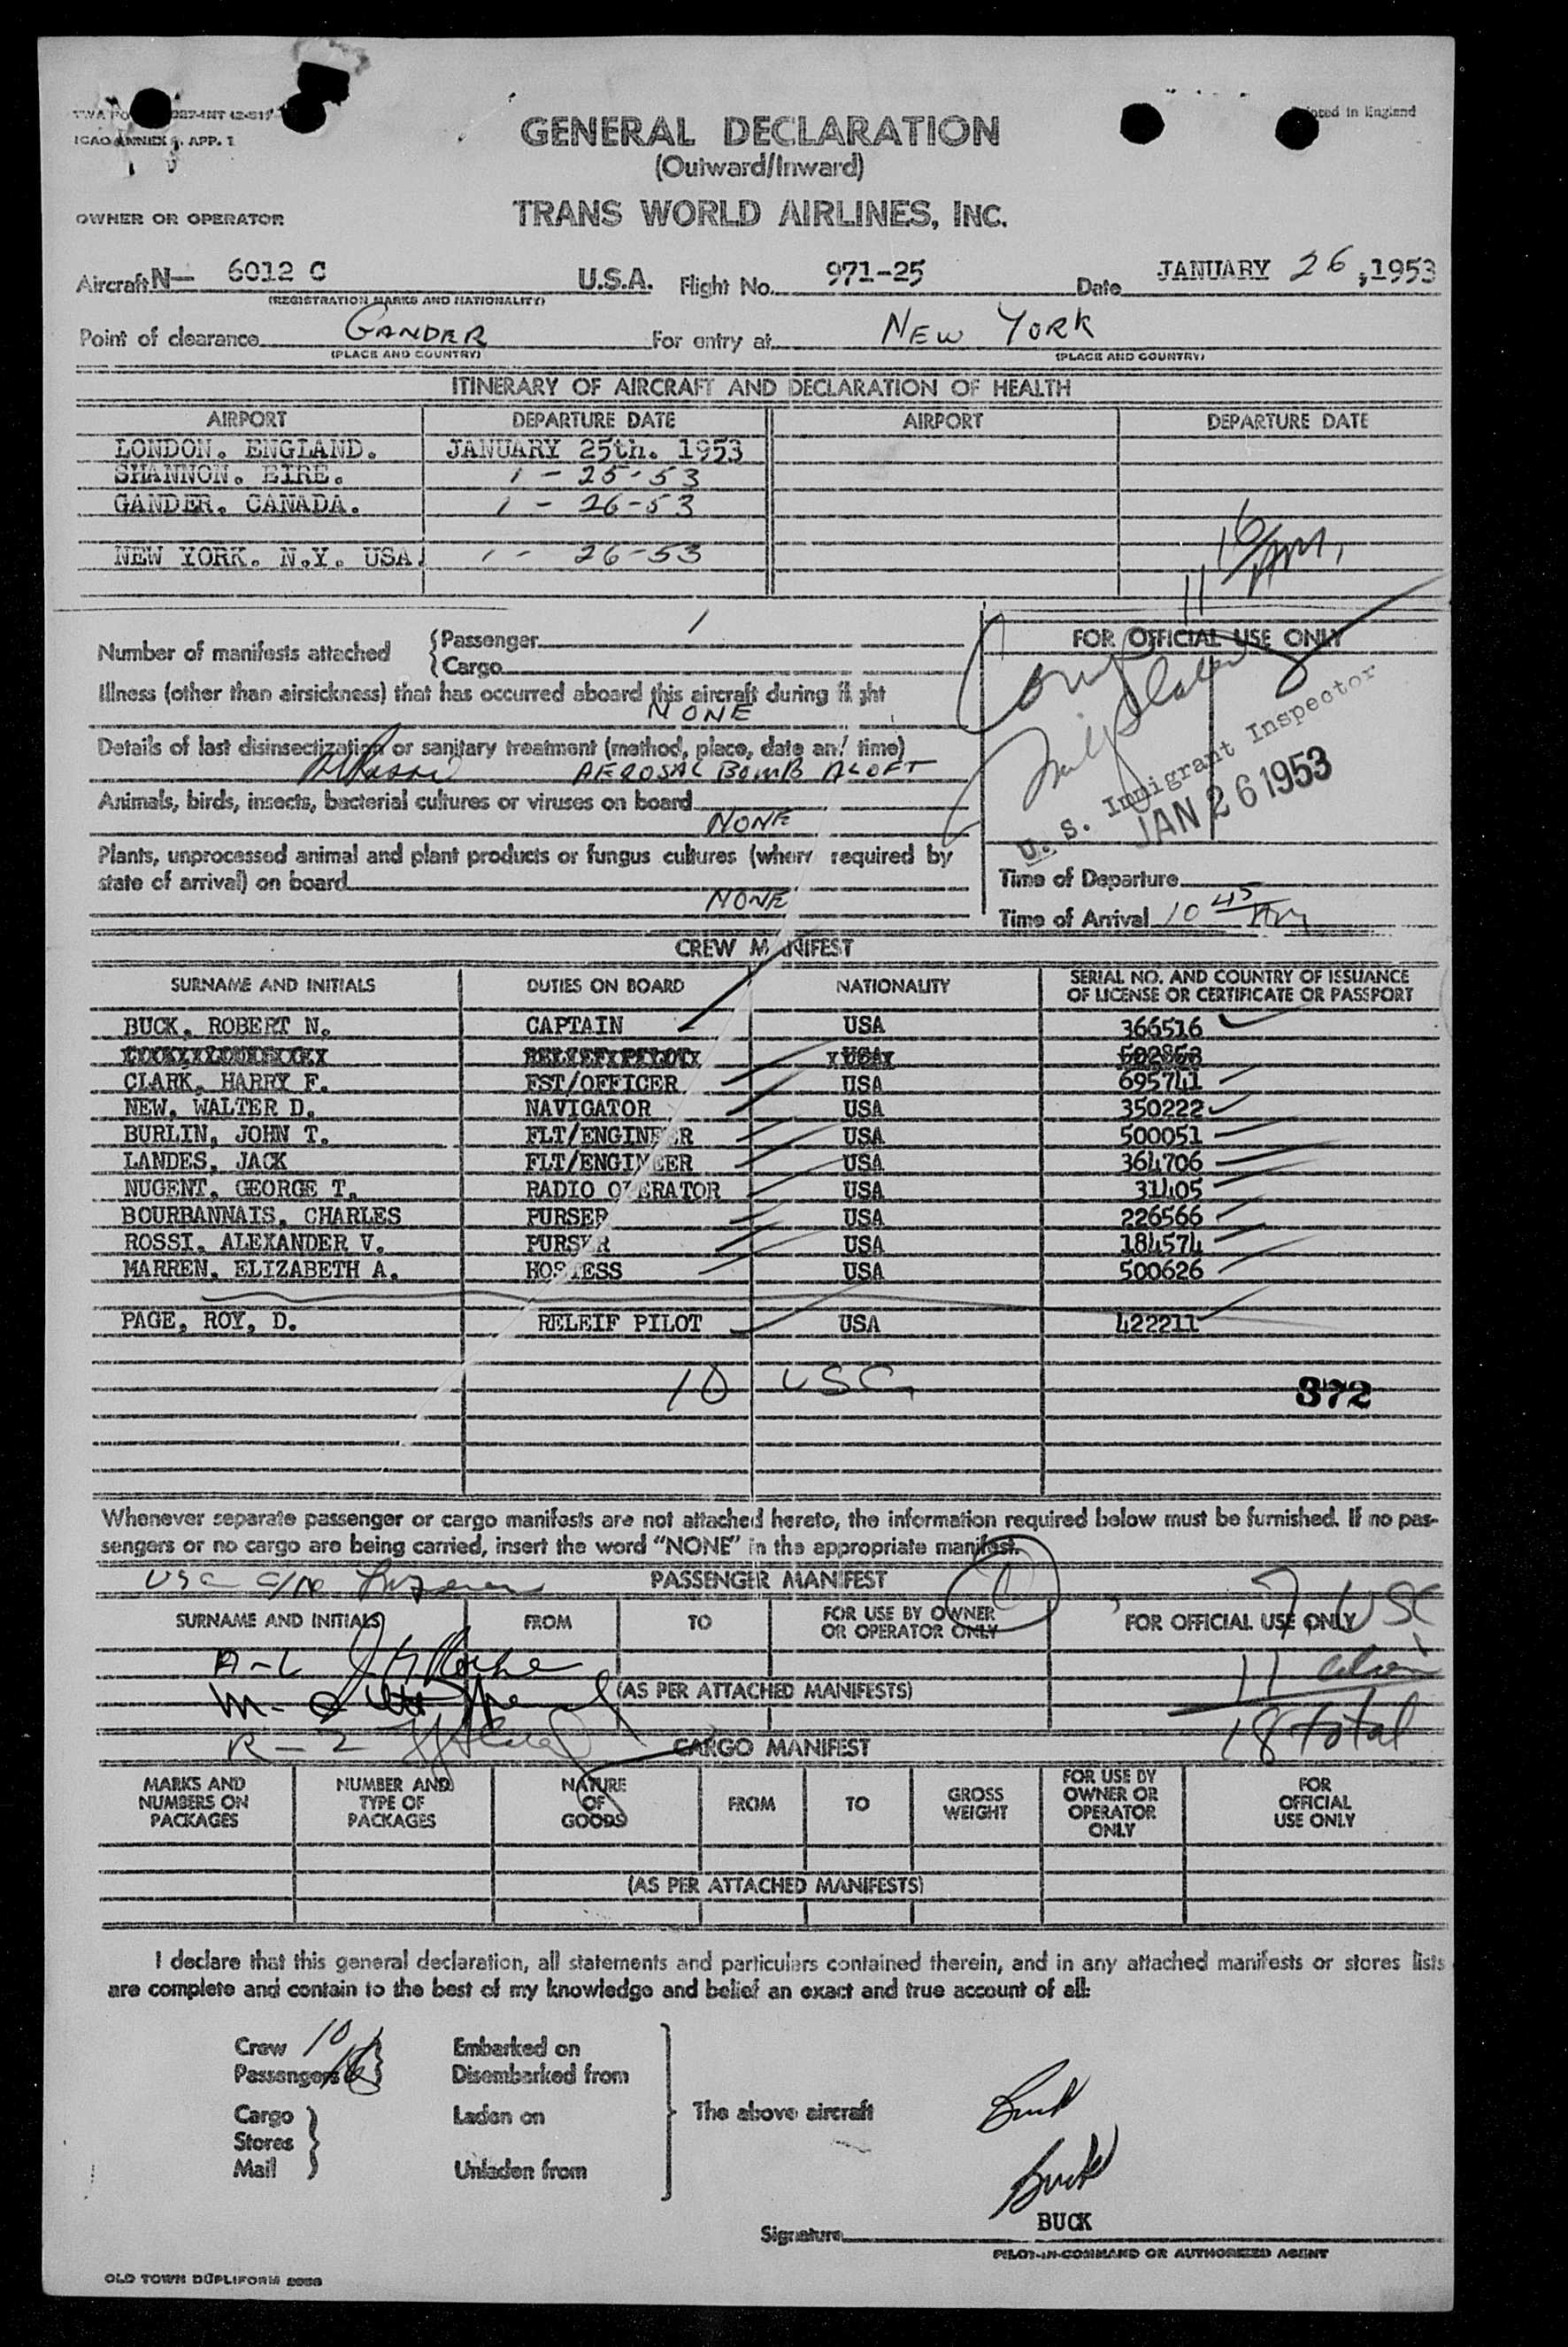 ICAO ANNEX 9, APP. 1
Printed in England
GENERAL DECLARATION
(Outward/Inward)
OWNER OR OPERATOR
TRANS WORLD AIRLINES, INC.
Aircraft N— 6012 C U.S.A. Flight No. 971-25 Date JANUARY 26, 1953
(REGISTRATION MARKS AND NATIONALITY)
Point of clearance GANDER For entry at NEW YORK
(PLACE AND COUNTRY) (PLACE AND COUNTRY)
ITINERARY OF AIRCRAFT AND DECLARATION OF HEALTH
AIRPORT DEPARTURE DATE AIRPORT DEPARTURE DATE
LONDON. ENGLAND. JANUARY 25th. 1953
SHANNON. EIRE. 1 - 25-53
GANDER. CANADA. 1 - 26-53
NEW YORK. N.Y. USA. 1 - 26-53
Number of manifests attached {Passenger 1
{Cargo
FOR OFFICIAL USE ONLY
Illness (other than airsickness) that has occurred aboard this aircraft during flight
NONE
Details of last disinsectization or sanitary treatment (method, place, date and time)
AEROSAL BOMB ALOFT
Animals, birds, insects, bacterial cultures or viruses on board
NONE
U. S. Immigrant Inspector
JAN 26 1953
Plants, unprocessed animal and plant products or fungus cultures (where required by
state of arrival) on board
NONE
Time of Departure
Time of Arrival 10 45 AM
CREW MANIFEST
SURNAME AND INITIALS DUTIES ON BOARD NATIONALITY SERIAL NO. AND COUNTRY OF ISSUANCE
OF LICENSE OR CERTIFICATE OR PASSPORT
BUCK, ROBERT N. CAPTAIN USA 366516
CLARK, HARRY F. FST/OFFICER USA 695741
NEW, WALTER D. NAVIGATOR USA 350222
BURLIN, JOHN T. FLT/ENGINEER USA 500051
LANDES, JACK FLT/ENGINEER USA 364706
NUGENT, GEORGE T. RADIO OPERATOR USA 31405
BOURBANNAIS, CHARLES PURSER USA 226566
ROSSI, ALEXANDER V. PURSER USA 184574
MARREN, ELIZABETH A. HOSTESS USA 500626
PAGE, ROY, D. RELEIF PILOT USA 422211
10 USC
372
Whenever separate passenger or cargo manifests are not attached hereto, the information required below must be furnished. If no pas-
sengers or no cargo are being carried, insert the word "NONE" in the appropriate manifest.
PASSENGER MANIFEST
7 USC
SURNAME AND INITIALS FROM TO FOR USE BY OWNER
OR OPERATOR ONLY
FOR OFFICIAL USE ONLY
A-L
11
(AS PER ATTACHED MANIFESTS)
R-Z
18 total
CARGO MANIFEST
MARKS AND
NUMBERS ON
PACKAGES
NUMBER AND
TYPE OF
PACKAGES
NATURE
OF
GOODS
FROM
TO
GROSS
WEIGHT
FOR USE BY
OWNER OR
OPERATOR
ONLY
FOR
OFFICIAL
USE ONLY
(AS PER ATTACHED MANIFESTS)
I declare that this general declaration, all statements and particulars contained therein, and in any attached manifests or stores lists
are complete and contain to the best of my knowledge and belief an exact and true account of all:
Crew 10 Embarked on
Passengers 18 Disembarked from
Cargo Laden on The above aircraft
Stores
Mail Unladen from
Buck
Buck
BUCK
Signature
PILOT-IN-COMMAND OR AUTHORIZED AGENT
OLD TOWN DUPLIFORM